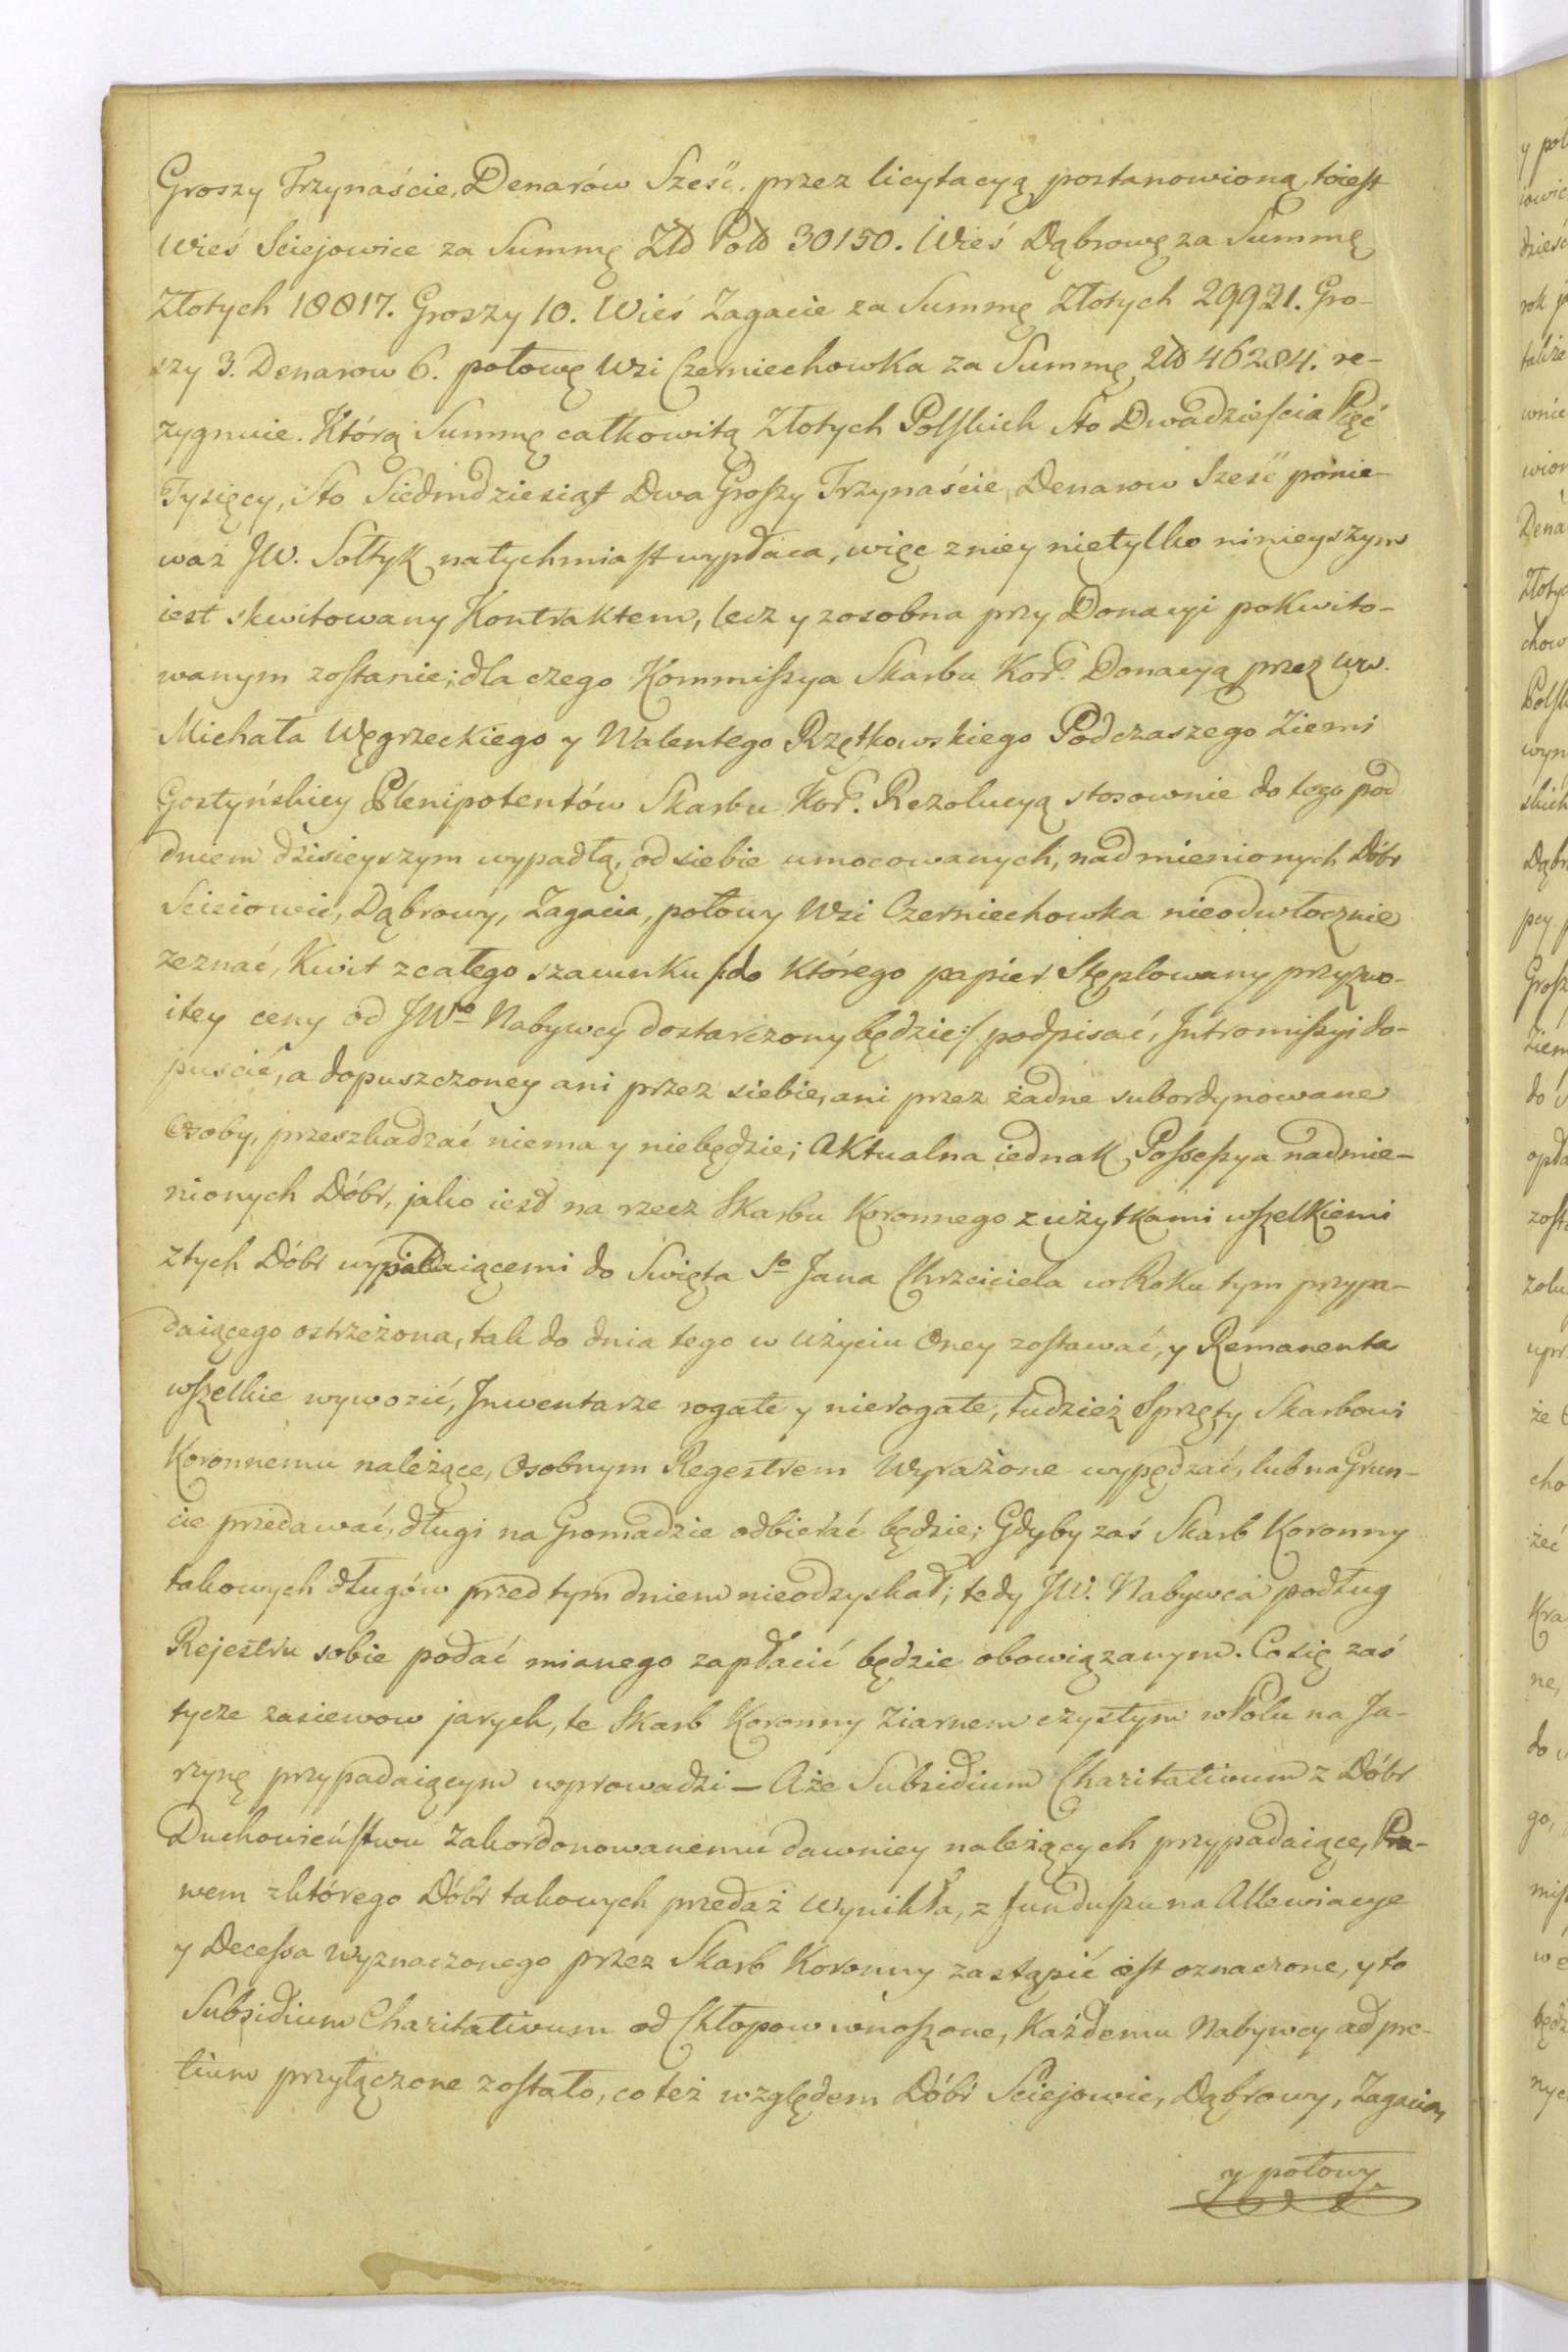 Groszy Trzynaście, Denarów Sześć. przez licytacyą postanowioną, toiest
Wieś Sciejowice za Summę Złt Pols 30150. Wieś Dąbrowę za Summę
Złotych 18817. Groszy 10. Wieś Zagacie za Summę Złotych 29921. Gro-
szy 3. Denarow 6. połowę Wsi Czerniechowka za Summę Złt 46284. re-
zygnuie. Którą Summę całkowitą Złotych Polskich Sto Dwadzieścia Pięć
Tysięcy, Sto Siedmdziesiąt Dwa Groszy Trzynaście, Denarow Sześć ponie-
waż JW. Sołtyk natychmiast wypłaca, więc z niey nietylko ninieyszym
iest skwitowany Kontraktem, lecz y zosobna przy Donacyi pokwito-
wanym zostanie; dla czego Kommissya Skarbu Kor. Donacyą przez Ww.
Michała Węgrzeckiego y Walentego Rzętkowskiego Podczaszego Ziemi
Gostyńskiey Plenipotentów Skarbu Kor. Rezolucyą stosownie do tego pod
dniem dzisieyszym wypadłą, od siebie umocowanych, nadmienionych Dóbr
Sciejowic, Dąbrowy, Zagacia, połowy Wsi Czerniechowka nieodwłocznie
zeznać, Kwit z całego szacunku /:do którego papier Stęplowany przyzwo-
itey ceny od JWo Nabywcy dostarczony będzie:/ podpisać, Intromissyi do-
puścić, a dopuszczoney ani przez siebie, ani przez żadne subordynowane
Osoby, przeszkadzać niema y niebędzie; Aktualna iednak Possessya nadmie-
nionych Dóbr, jako iest na rzecz Skarbu Koronnego z użytkami wszelkiemi
z tych Dóbr wypadaiącemi do Swięta So Jana Chrzciciela w Roku tym przypa-
daiącego ostrzeżona, tak do dnia tego w Użyciu Oney zostawać, y Remanenta
wszelkie wywozić, Inwentarze rogate y nierogate, tudzież Sprzęty Skarbowi
Koronnemu należące, Osobnym Regestrem Wyrażone wypędzać, lub na Grun-
cie przedawać, długi na Gromadzie odbierać będzie; Gdyby zaś Skarb Koronny
takowych długów przed tym dniem nieodzyskał; tedy JW. Nabywca podług
Rejestru sobie podać mianego zapłacić będzie obowiązanym. Co się zaś
tycze zasiewow jarych, te Skarb Koronny Ziarnem czystym w Polu na Ja-
rzynę przypadaiącym wprowadzi — Aże Subsidium Charitativum z Dóbr
Duchowieństwu Zakordonowanemu dawniey należących przypadaiące, Pra-
wem z którego Dóbr takowych przedaż wynikła, z funduszu na Allewiacye
y Decessa wyznaczonego przez Skarb Koronny zastąpić iest oznaczone, y to
Subsidium Charitativum od Chłopow wnoszone, Każdemu Nabywcy ad pre-
tium przyłączone zostało, co też względem Dóbr Sciejowic, Dąbrowy, Zagacia,
y połowy